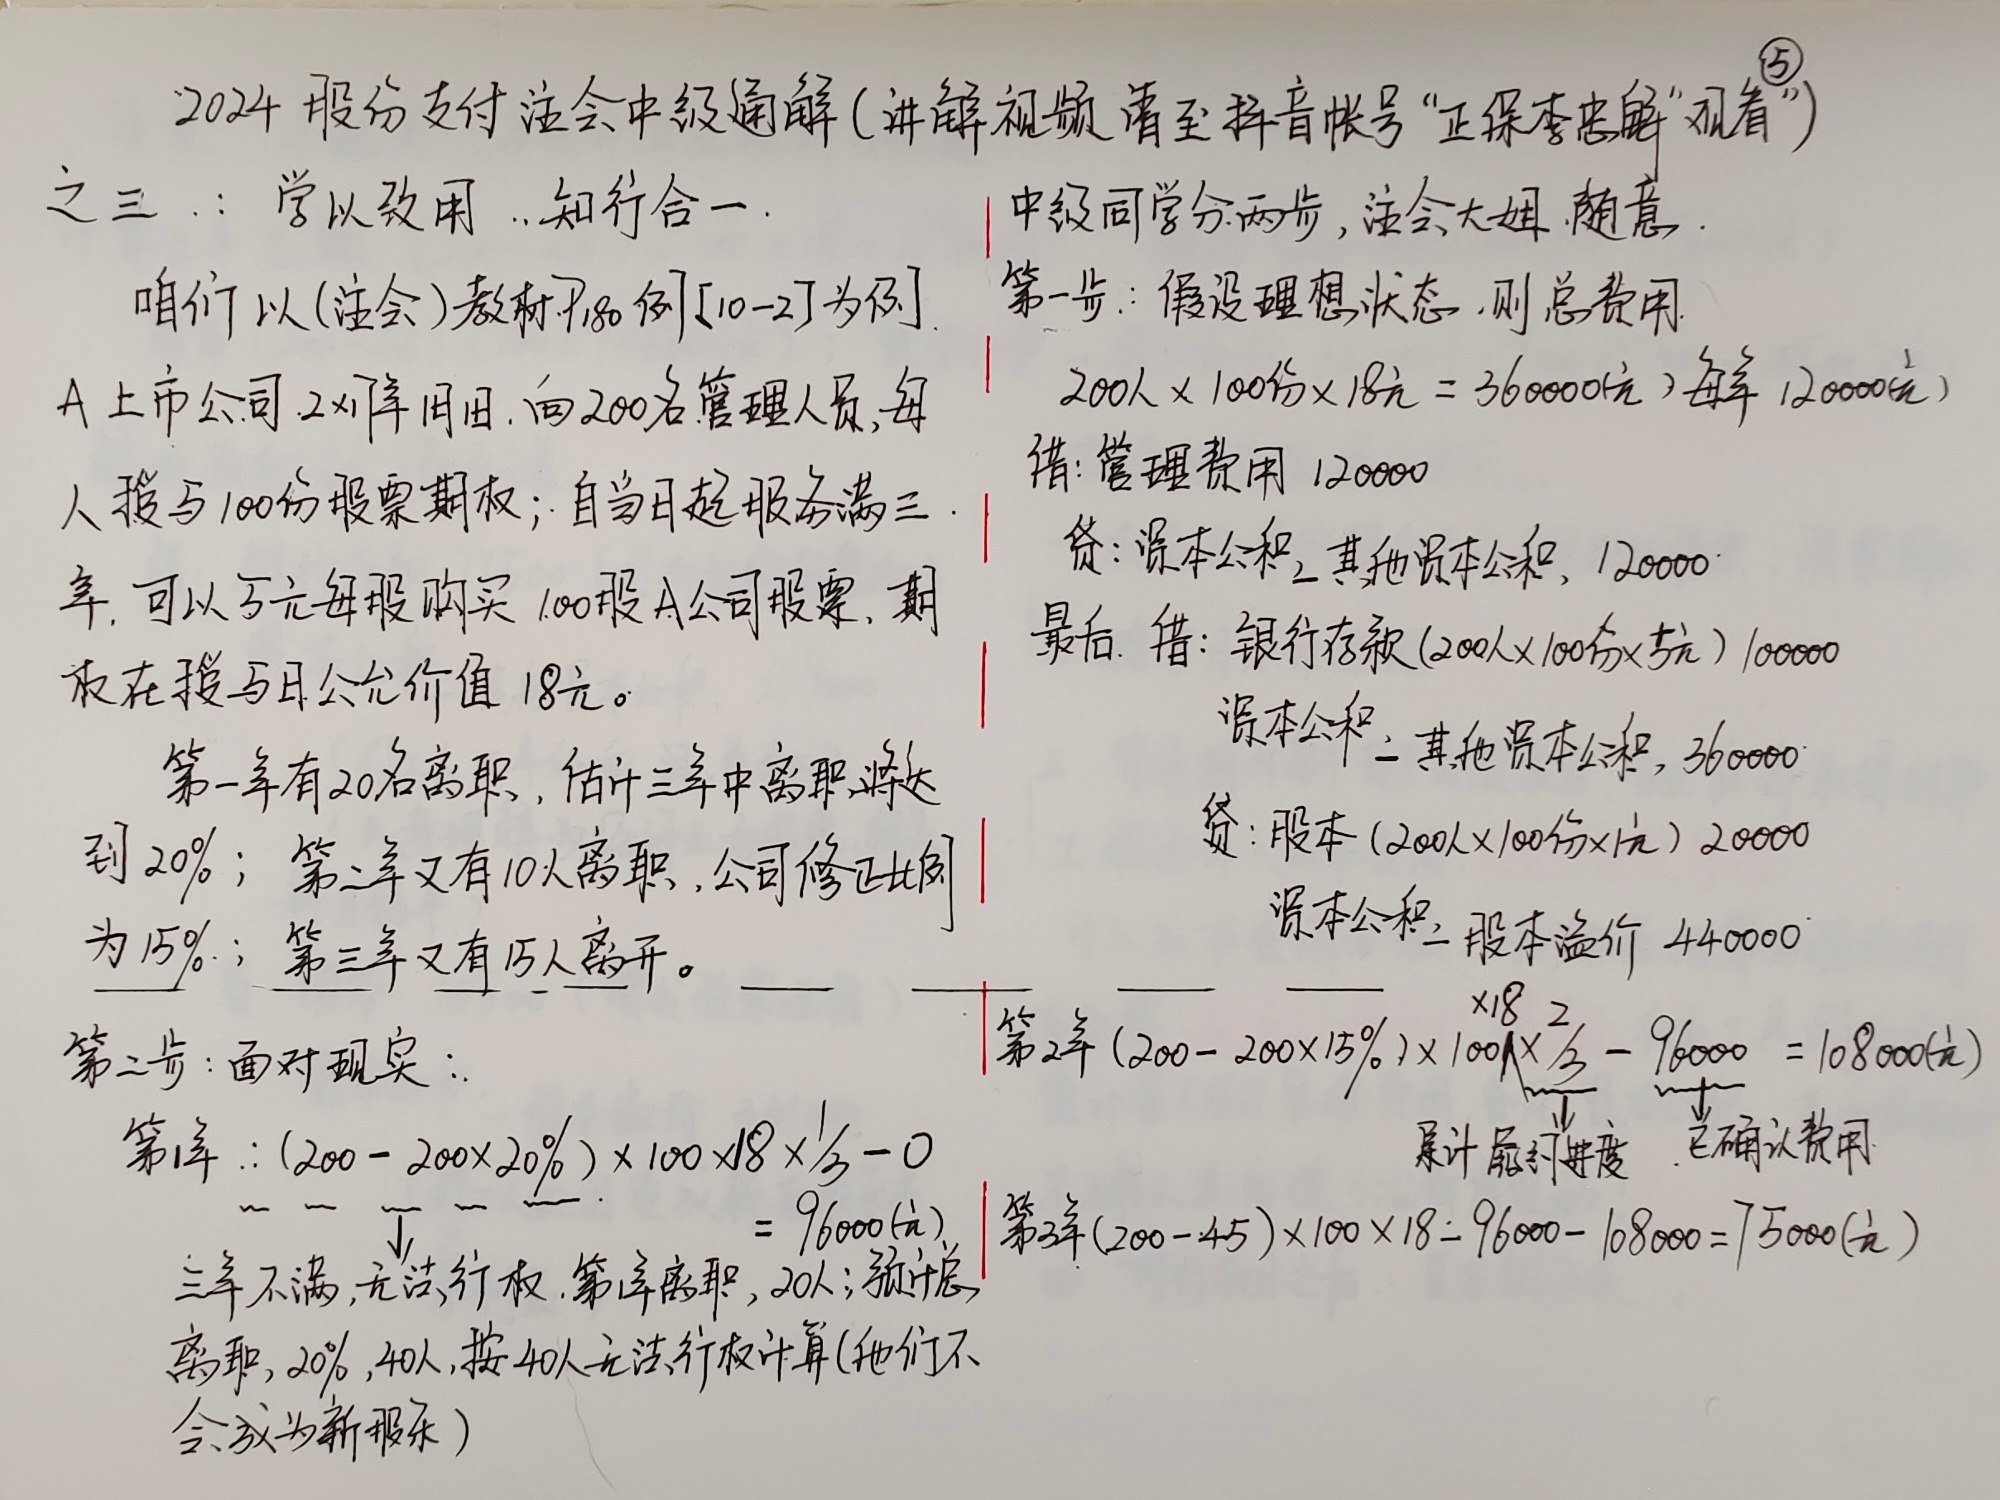 ⑤
2024 股份支付 注会中级通解(讲解视频 请至抖音帐号“正保李忠解”观看”)
之三 : 学以致用 .. 知行合一.
咱们以(注会)教材P180例[10-2]为例.
A上市公司 2×1年1月1日, 向200名管理人员, 每
人授与100份股票期权; 自当日起服务满三
年, 可以5元每股购买 100股A公司股票, 期
权在授与日公允价值18元。
第一年有20名离职, 估计三年中离职将达
到20%; 第二年又有10人离职, 公司修正比例
为15%; 第三年又有15人离开。
中级同学分两步, 注会大姐随意.
第一步: 假设理想状态, 则总费用
200人×100份×18元=360000(元), 每年120000(元)
借: 管理费用 120000
贷: 资本公积—其他资本公积, 120000
最后. 借: 银行存款(200人×100份×5元) 100000
资本公积—其他资本公积, 360000
贷: 股本(200人×100份×1元) 20000
资本公积—股本溢价 440000
第二步: 面对现实:
第1年: (200-200×20%)×100×18×1/3-0
=96000(元)
三年不满, 无法行权. 第1年离职, 20人; 预计总
离职, 20%, 40人, 按40人无法行权计算(他们不
会成为新股东)
第2年(200-200×15%)×100×18×2/3-96000=108000(元)
累计履约进度 已确认费用
第3年(200-45)×100×18-96000-108000=75000(元)